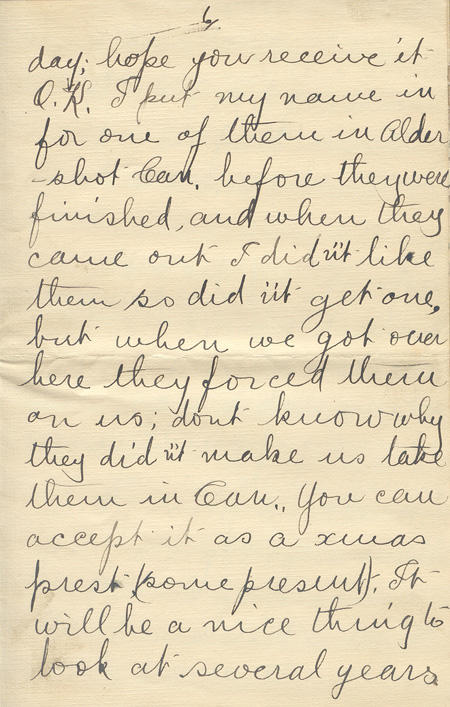 6
day; hope you receive it
O.K. I put my name in
for one of them in Alder
-shot Can. before they were
finished, and when they
came out I did n't like
them so did n't get one,
but when we got over
here they forced them
on us; dont know why
they did n't make us take
them in Can., You can
accept it as a xmas
prest, (some present). It
will be a nice thing to
look at several years